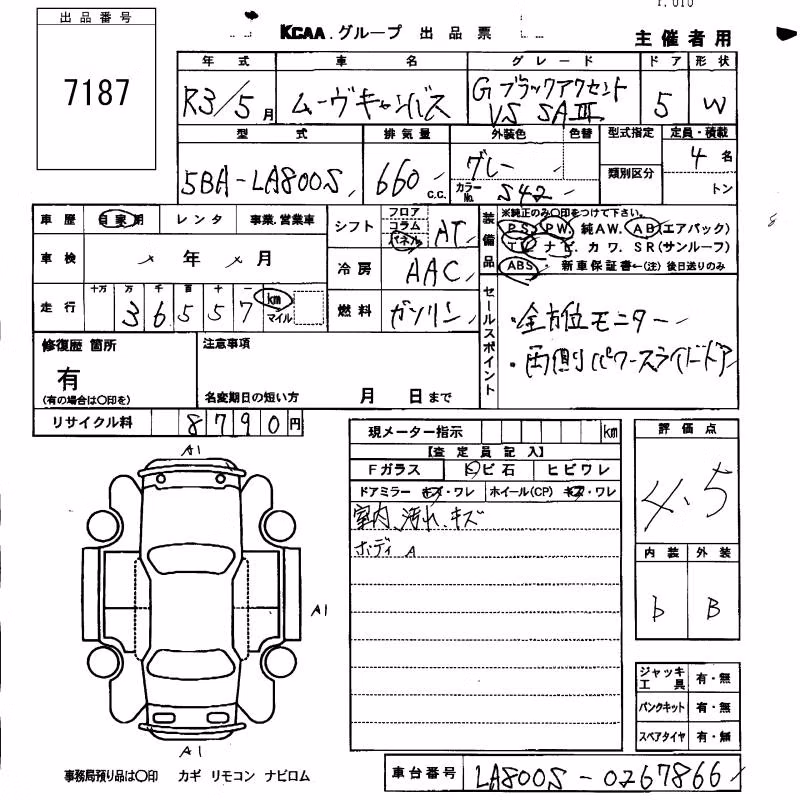 出品番号
7187
KCAA.グループ 出品票
主催者用
年式 車名 グレード ドア 形状
R3/5月 ムーヴキャンバス Gブラックアクセント VS SAⅢ 5 W
型式 排気量 外装色 色替 型式指定 定員・積載
5BA-LA800S 660 C.C. グレー 4名
カラーNo. S42 類別区分 トン
車歴 自家用 レンタ 事業.営業車
シフト フロア コラム パネル AT
装備品 ※純正のみ〇印をつけて下さい。
PS. PW. 純AW. AB(エアバック)
TV. ナビ. カワ. SR(サンルーフ)
ABS. 新車保証書←(注)後日送りのみ
車検 年 月
冷房 AAC
走行 十万 万 千 百 十 一
36557 km マイル
燃料 ガソリン
セールスポイント
・全方位モニター
・両側パワースライドドア
修復歴 箇所
有
(有の場合は〇印を)
注意事項
名変期日の短い方 月 日まで
リサイクル料 8790円
現メーター指示 km
【査定員記入】
Fガラス トビ石 ヒビワレ
ドアミラー キズ・ワレ ホイール(CP) キズ・ワレ
室内 汚れ、キズ
ボディ A
評価点
4.5
内装 外装
b B
A1
A1
A1
ジャッキ工具 有・無
パンクキット 有・無
スペアタイヤ 有・無
事務局預り品は〇印 カギ リモコン ナビロム
車台番号 LA800S-0267866